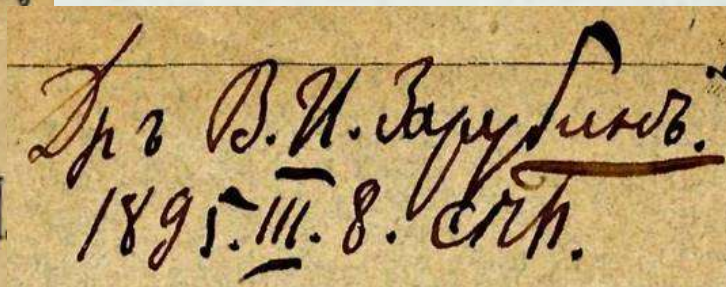 Дръ В. И. Зарубинъ.
1895. III. 8. СПб.